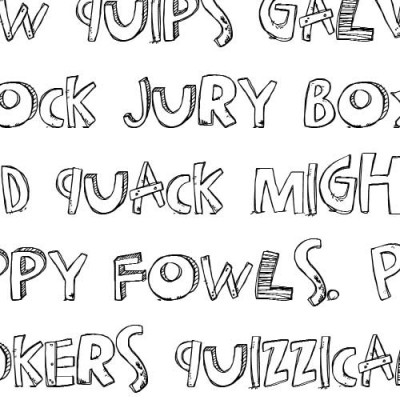 W QUIPS GALV
OCK JURY BOX
D QUACK MIGH
PPY FOWLS. P
OKERS QUIZZICA